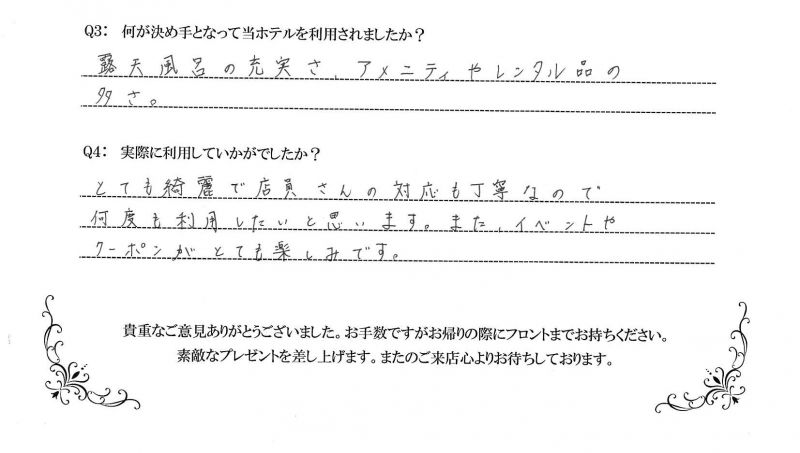 Q3： 何が決め手となって当ホテルを利用されましたか？
露天風呂の充実さ、アメニティやレンタル品の
多さ。
Q4： 実際に利用していかがでしたか？
とても綺麗で店員さんの対応も丁寧なので
何度も利用したいと思います。また、イベントや
クーポンがとても楽しみです。
貴重なご意見ありがとうございました。お手数ですがお帰りの際にフロントまでお持ちください。
素敵なプレゼントを差し上げます。またのご来店心よりお待ちしております。